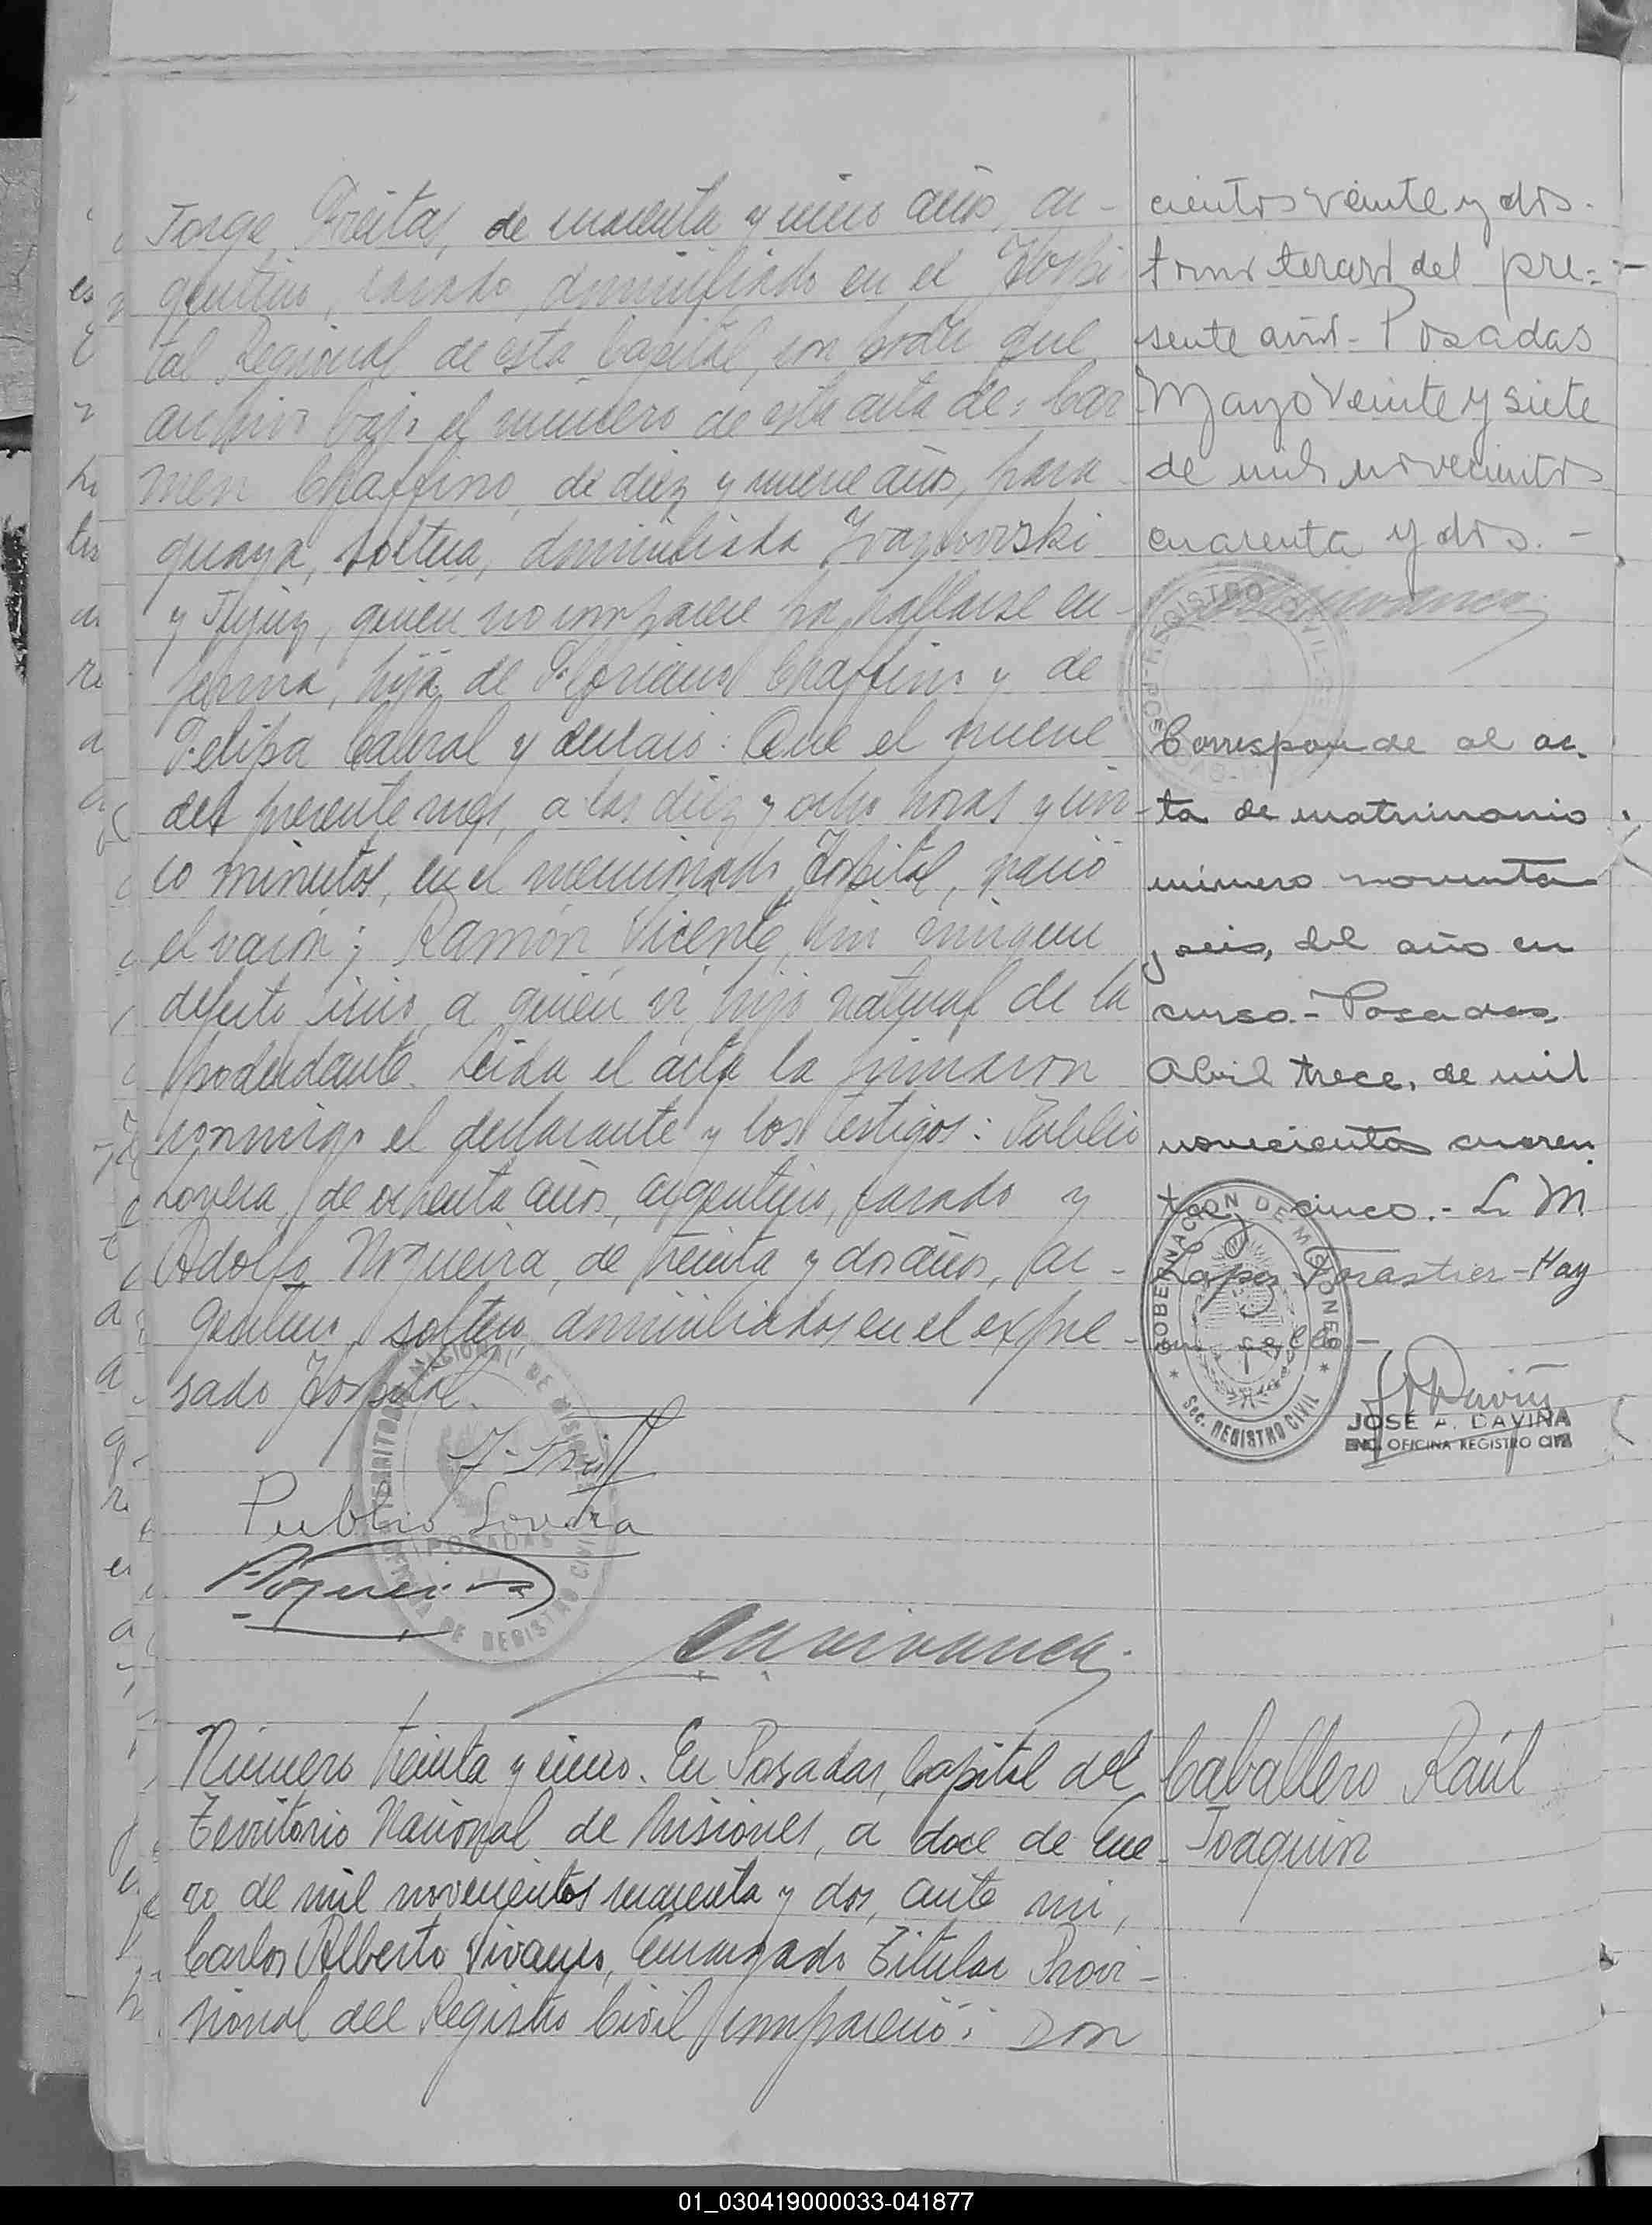 Jorge Freitas, de cuarenta y cinco años, ar-
gentino, casado, domiciliado en el Hospi
tal Regional de esta Capital, con poder que
archivo bajo el número de esta acta de: Car
men Chaffino, de diez y nueve años, para
guaya, soltera, domiciliada
y Jujuy, quien no comparece por hallarse en
ferma, hija de Floriano Chaffino y de
Felipa Cabral y declaró: Que el nueve
del presente mes, a las diez y ocho horas y cin-
co minutos, en el mencionado Hospital, nació
el varón; Ramón Vicente, sin ningún
defecto físico, a quien vi, hijo natural de la
poderdante. Leida el acta la firmaron
conmigo el declarante y los testigos: Publio
Lovera, de ochenta años, argentino, casado y
Adolfo Nogueira, de treinta y dos años, ar-
gentino, soltero, domiciliados en el expre-
sado Hospital.
Publio Lovera
Nogueira
CAVivanco
Número treinta y cinco. En Posadas, Capital del
Territorio Nacional de Misiones, a doce de Ene-
ro de mil novecientos cuarenta y dos, ante mi,
Carlos Alberto Vivanco, Encargado Titular Provi-
sional del Registro Civil compareció: Don
cientos veinte y dos.
tomo tercero del pre-
sente año - Posadas
Mayo veinte y siete
de mil novecientos
cuarenta y dos. -
Corresponde al ac-
ta de matrimonio
número noventa
y seis, del año en
curso.- Posadas,
Abril trece, de mil
novecientos cuaren
ta y cinco.- L. M.
Lopez Forastier - Hay
un sello -
GOBERNACION DE MISIONES
Sec. REGISTRO CIVIL
JOSE A. DAVIÑA
ENC. OFICINA REGISTRO CIVIL
Caballero Raúl
Joaquin
01_030419000033-041877